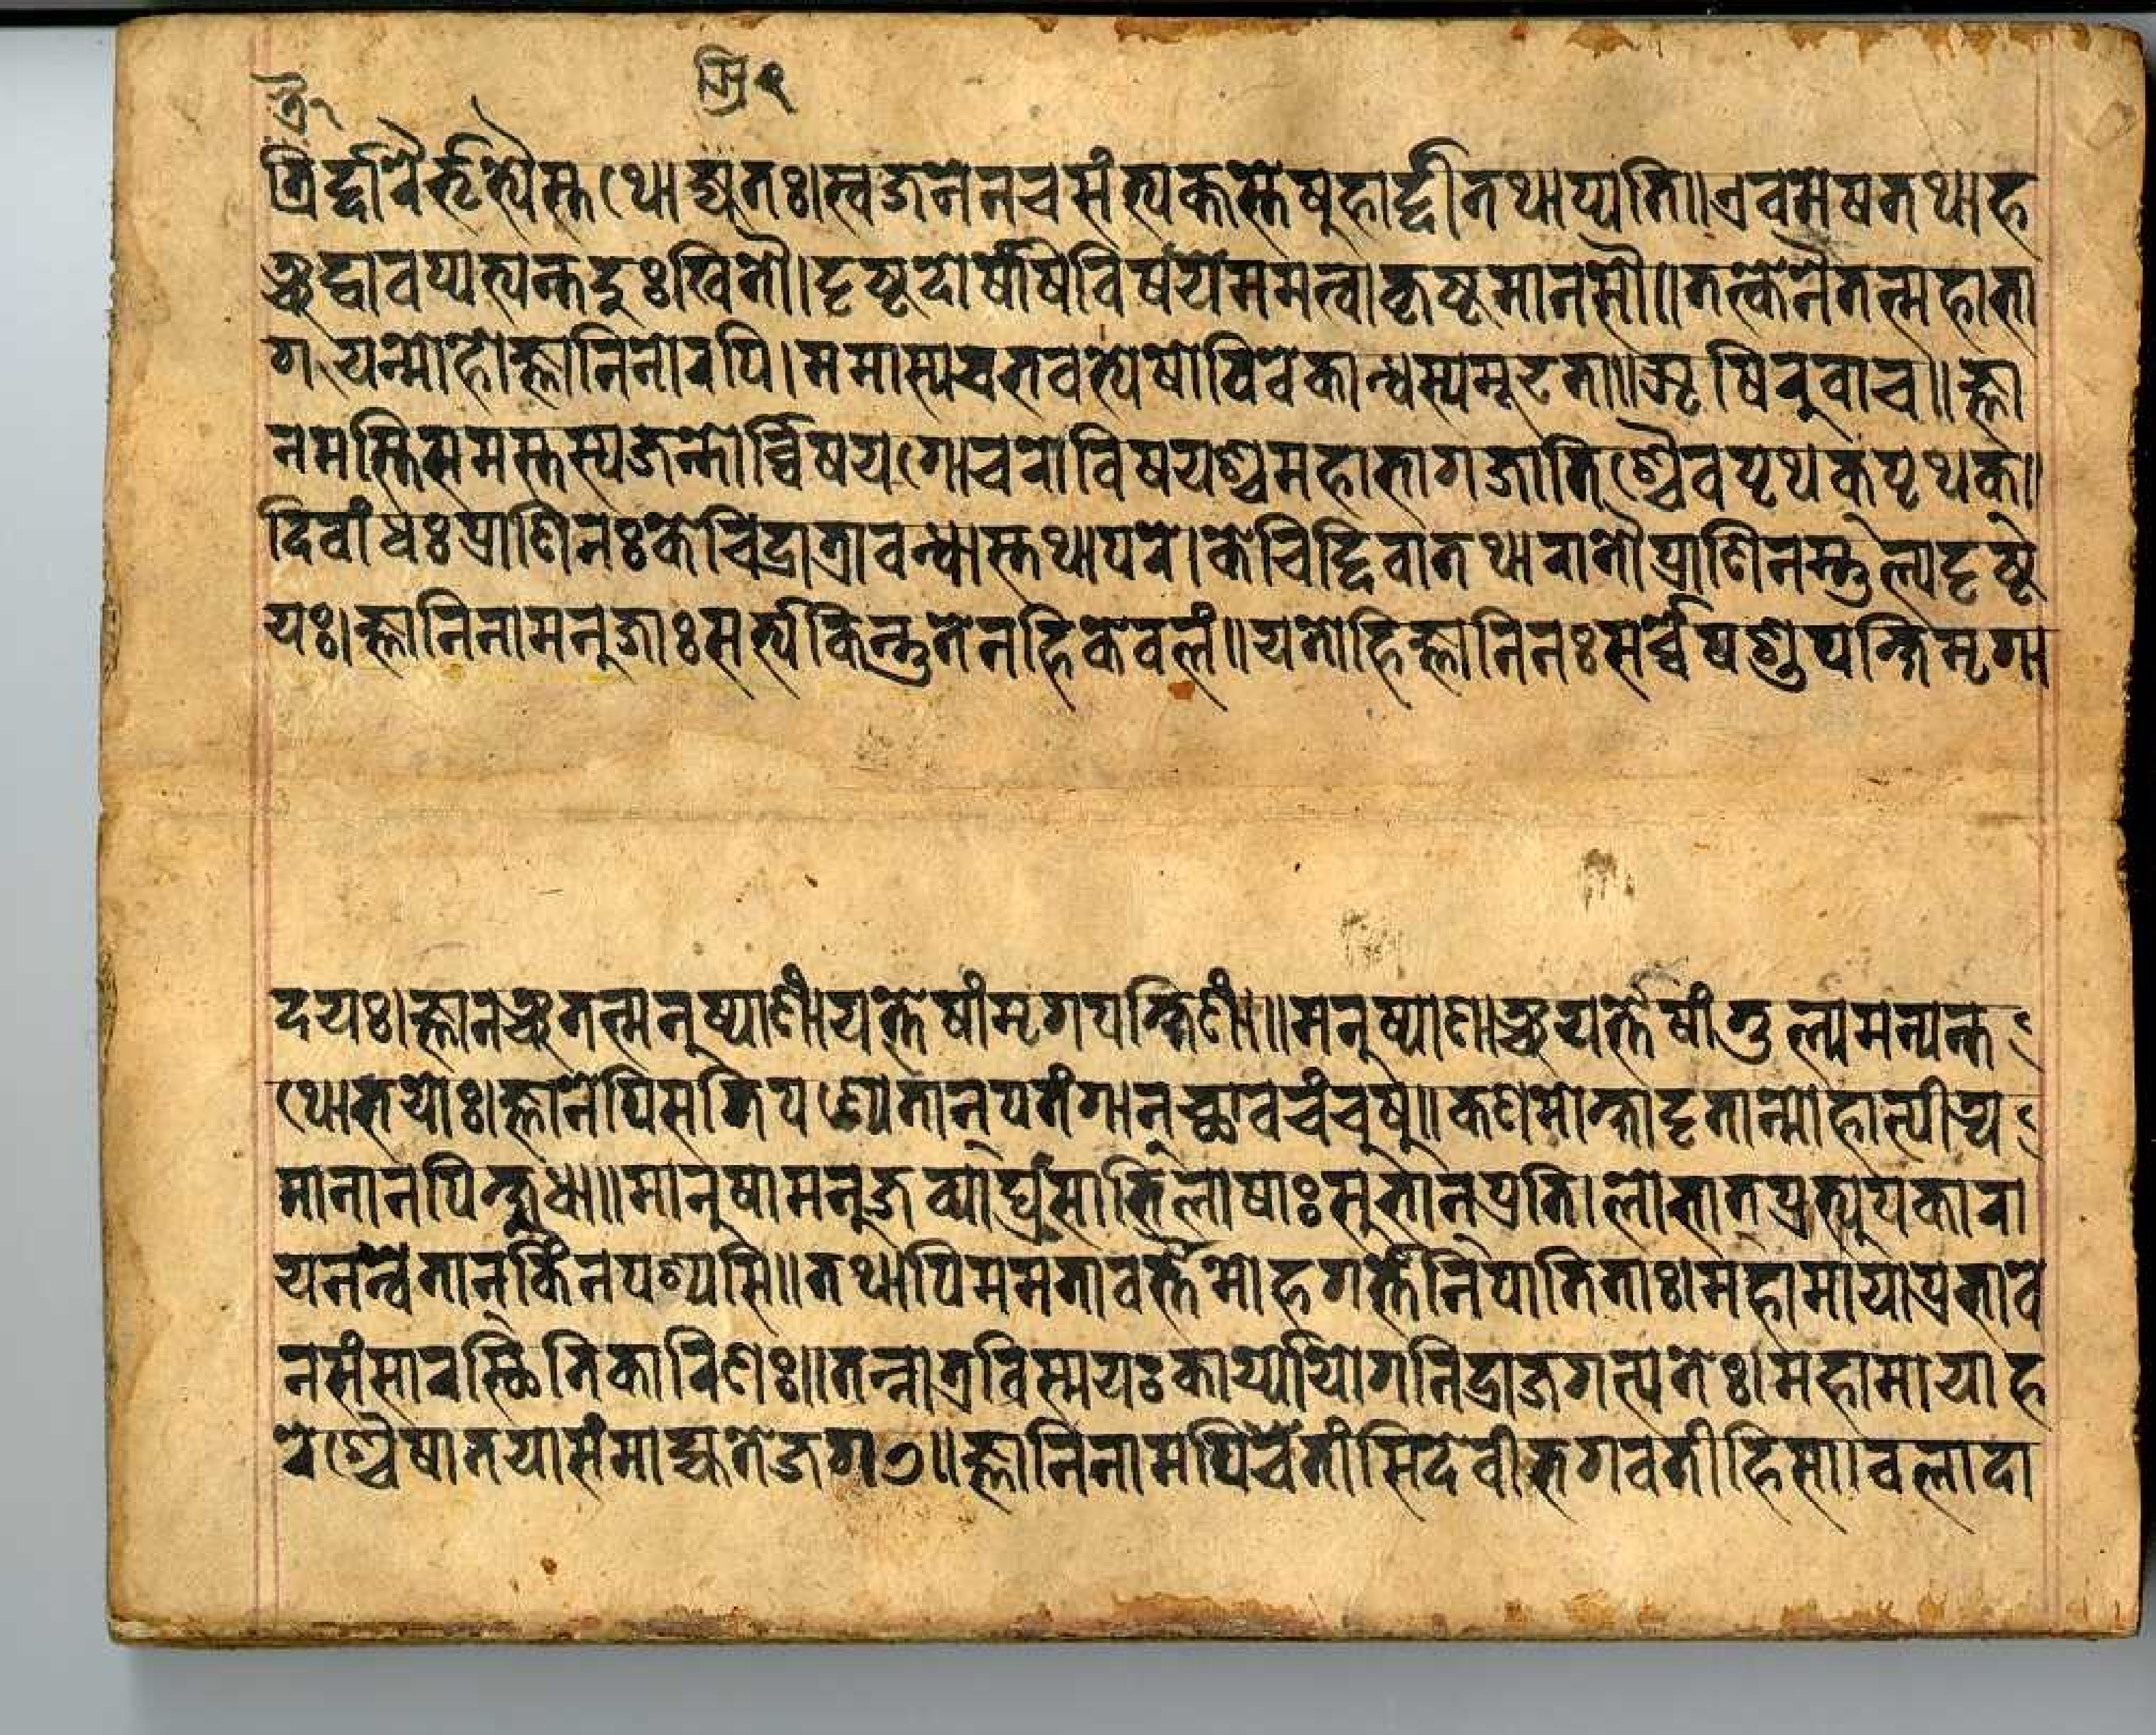 त्रिर्द्दारैर्भृत्यैस्तथोद्धृतः।स्वजनेनचसंत्यक्तस्तेषुहार्द्दीतथाप्यति॥एवमेषतथाह
ञ्चद्वावप्यत्यन्तदुःखितौ।दृष्टदोषेपिविषयेममत्वाकृष्टमानसौ॥तत्केनैतन्महाभा
गयन्मोहोज्ञानिनोरपि।ममास्यचभवत्येषोविवेकान्धस्यमूढता॥ऋषिरुवाच॥ज्ञा
नमस्तिसमस्तस्यजन्तोर्व्विषयगोचरे।विषयश्चमहाभागजातिश्चैवपृथक्पृथक्॥
दिवांधःप्राणिनःकेचिद्रात्रावन्धास्तथापरे।केचिद्दिवातथारात्रौप्राणिनस्तुल्यदृष्ट
यः।ज्ञानिनामनुजाःसत्यंकिन्तुतेनहिकेवलं॥यतोहिज्ञानिनःसर्व्वेपशुपक्षिमृगा
दयः।ज्ञानञ्चतत्मनुष्याणांयत्तेषांमृगपक्षिणां॥मनुष्याणाञ्चयत्तेषांतुल्यमन्यन्त
थोभयोः।ज्ञानेपिसतिपश्येतान्पतंगान्छावचंचुषु॥कणमोक्षादृतान्मोहात्पीड्य
मानानपिक्षुधा॥मानुषामनुजव्याघ्रसाभिलाषाःसुतान्प्रति।लोभात्प्रत्युपकारा
यनन्वेतान्किंनपश्यसि॥तथापिममतावर्त्तेमोहगर्त्तेनिपातिताः।महामायाप्रभावे
नसंसारस्थितिकारिणः॥तन्नात्रविस्मयःकार्य्योयोगनिद्राजगत्पतेः।महामायाह
रेश्चैषातयासंमोह्यतेजगत्॥ज्ञानिनामपिचेतांसिदेवीभगवतीहिसा।वलादा